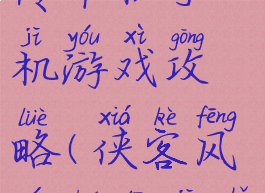 jī yóu xì gōng
机游戏攻
lüè xiá kè fēng
略(侠客风